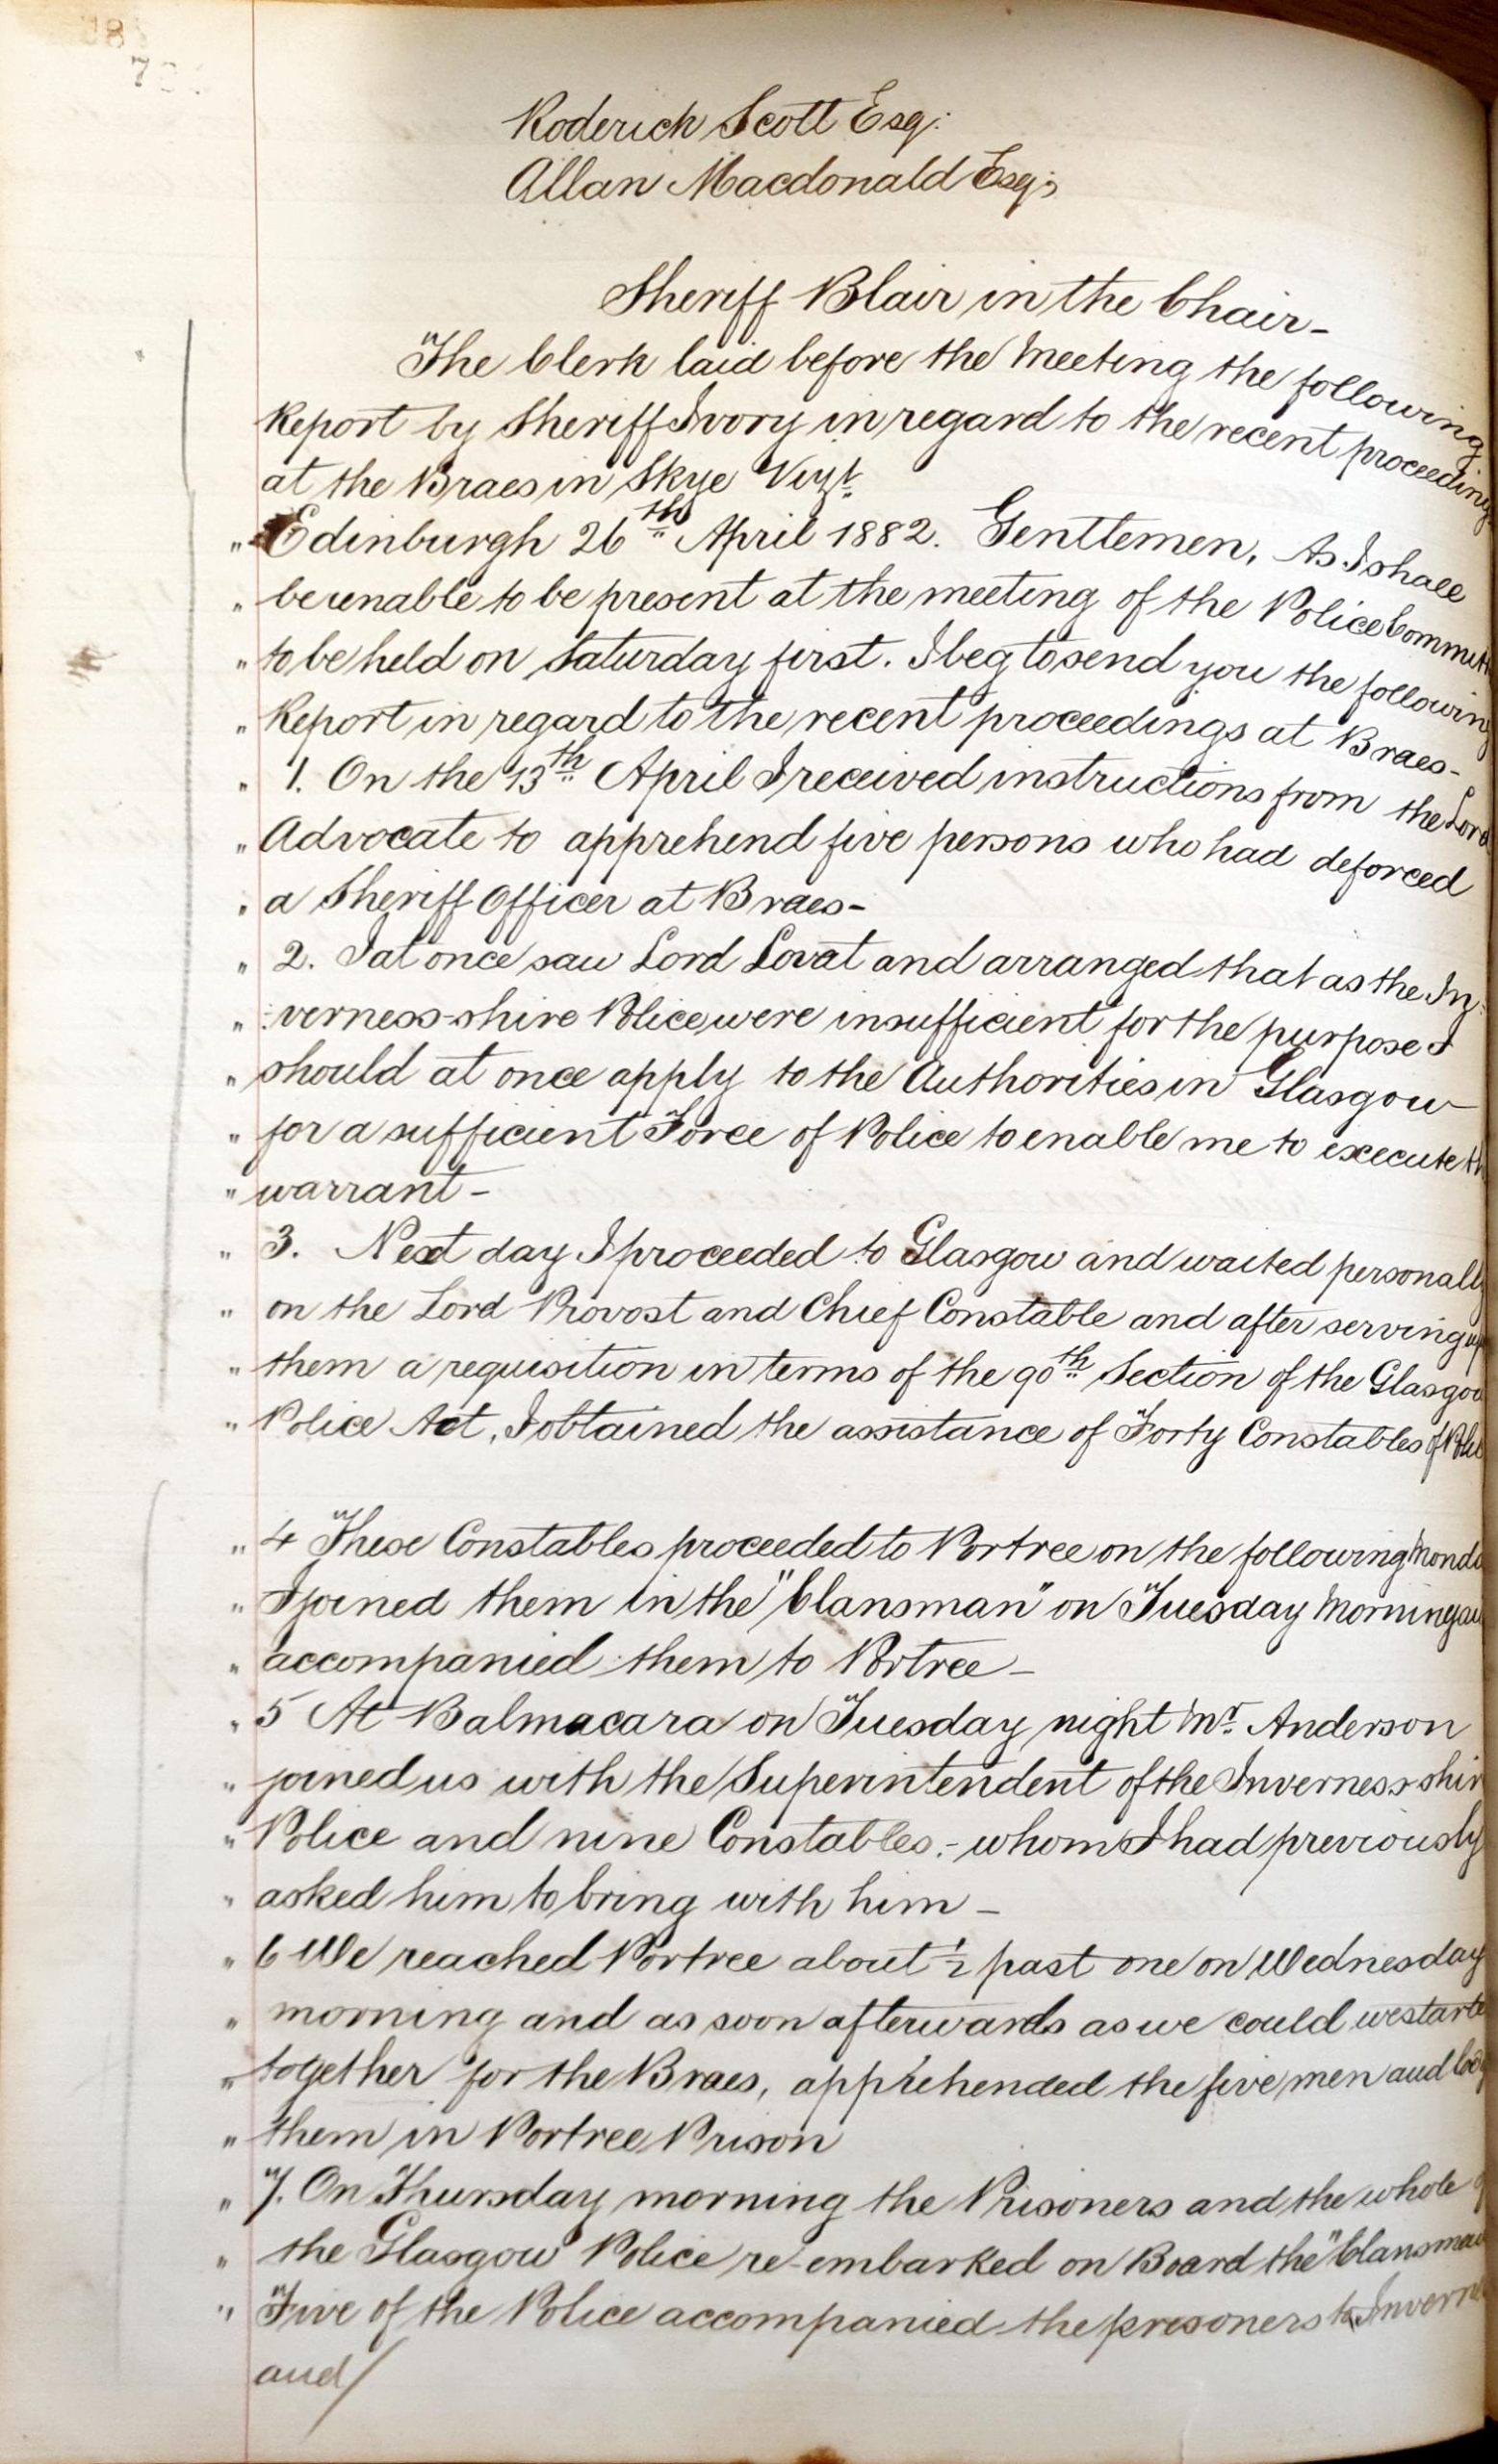 Roderick Scott Esq:
Allan Macdonald Esq;
Sheriff Blair in the Chair-
The Clerk laid before the Meeting the following
Report by Sheriff Ivory in regard to the recent proceedings
at the Braes in Skye Vizt.
" Edinburgh 26th April 1882. Gentlemen, As I shall
" be unable to be present at the meeting of the Police Committ
" to be held on Saturday first. I beg to send you the following
" Report in regard to the recent proceedings at Braes-
" 1. On the 13th April I received instructions from the Lord
" Advocate to apprehend five persons who had deforced
" a Sheriff Officer at Braes-
" 2. I at once saw Lord Lovat and arranged that as the In:
" :verness-shire Police were insufficient for the purpose I
" should at once apply to the Authorities in Glasgow
" for a sufficient Force of Police to enable me to execute th
" warrant-
" 3. Next day I proceeded to Glasgow and waited personally
" on the Lord Provost and Chief Constable and after serving up
" them a requisition in terms of the 90th Section of the Glasgow
" Police Act, I obtained the assistance of Forty Constables of Poli
" 4 These Constables proceeded to Portree on the following Monda
" I joined them in the "Clansman" on Tuesday Morning an
" accompanied them to Portree-
" 5 At Balmacara on Tuesday night Mr. Anderson
" joined us with the Superintendent of the Inverness-shir
" Police and nine Constables,- whom I had previously
" asked him to bring with him-
" 6 We reached Portree about ½ past one on Wednesday
" morning and as soon afterwards as we could we starte
" together for the Braes, apprehended the five men and lod
" them in Portree Prison
" 7. On Thursday morning the Prisoners and the whole of
" the Glasgow Police re-embarked on Board the "Clansman
" Five of the Police accompanied the prisoners to Inverne
and/